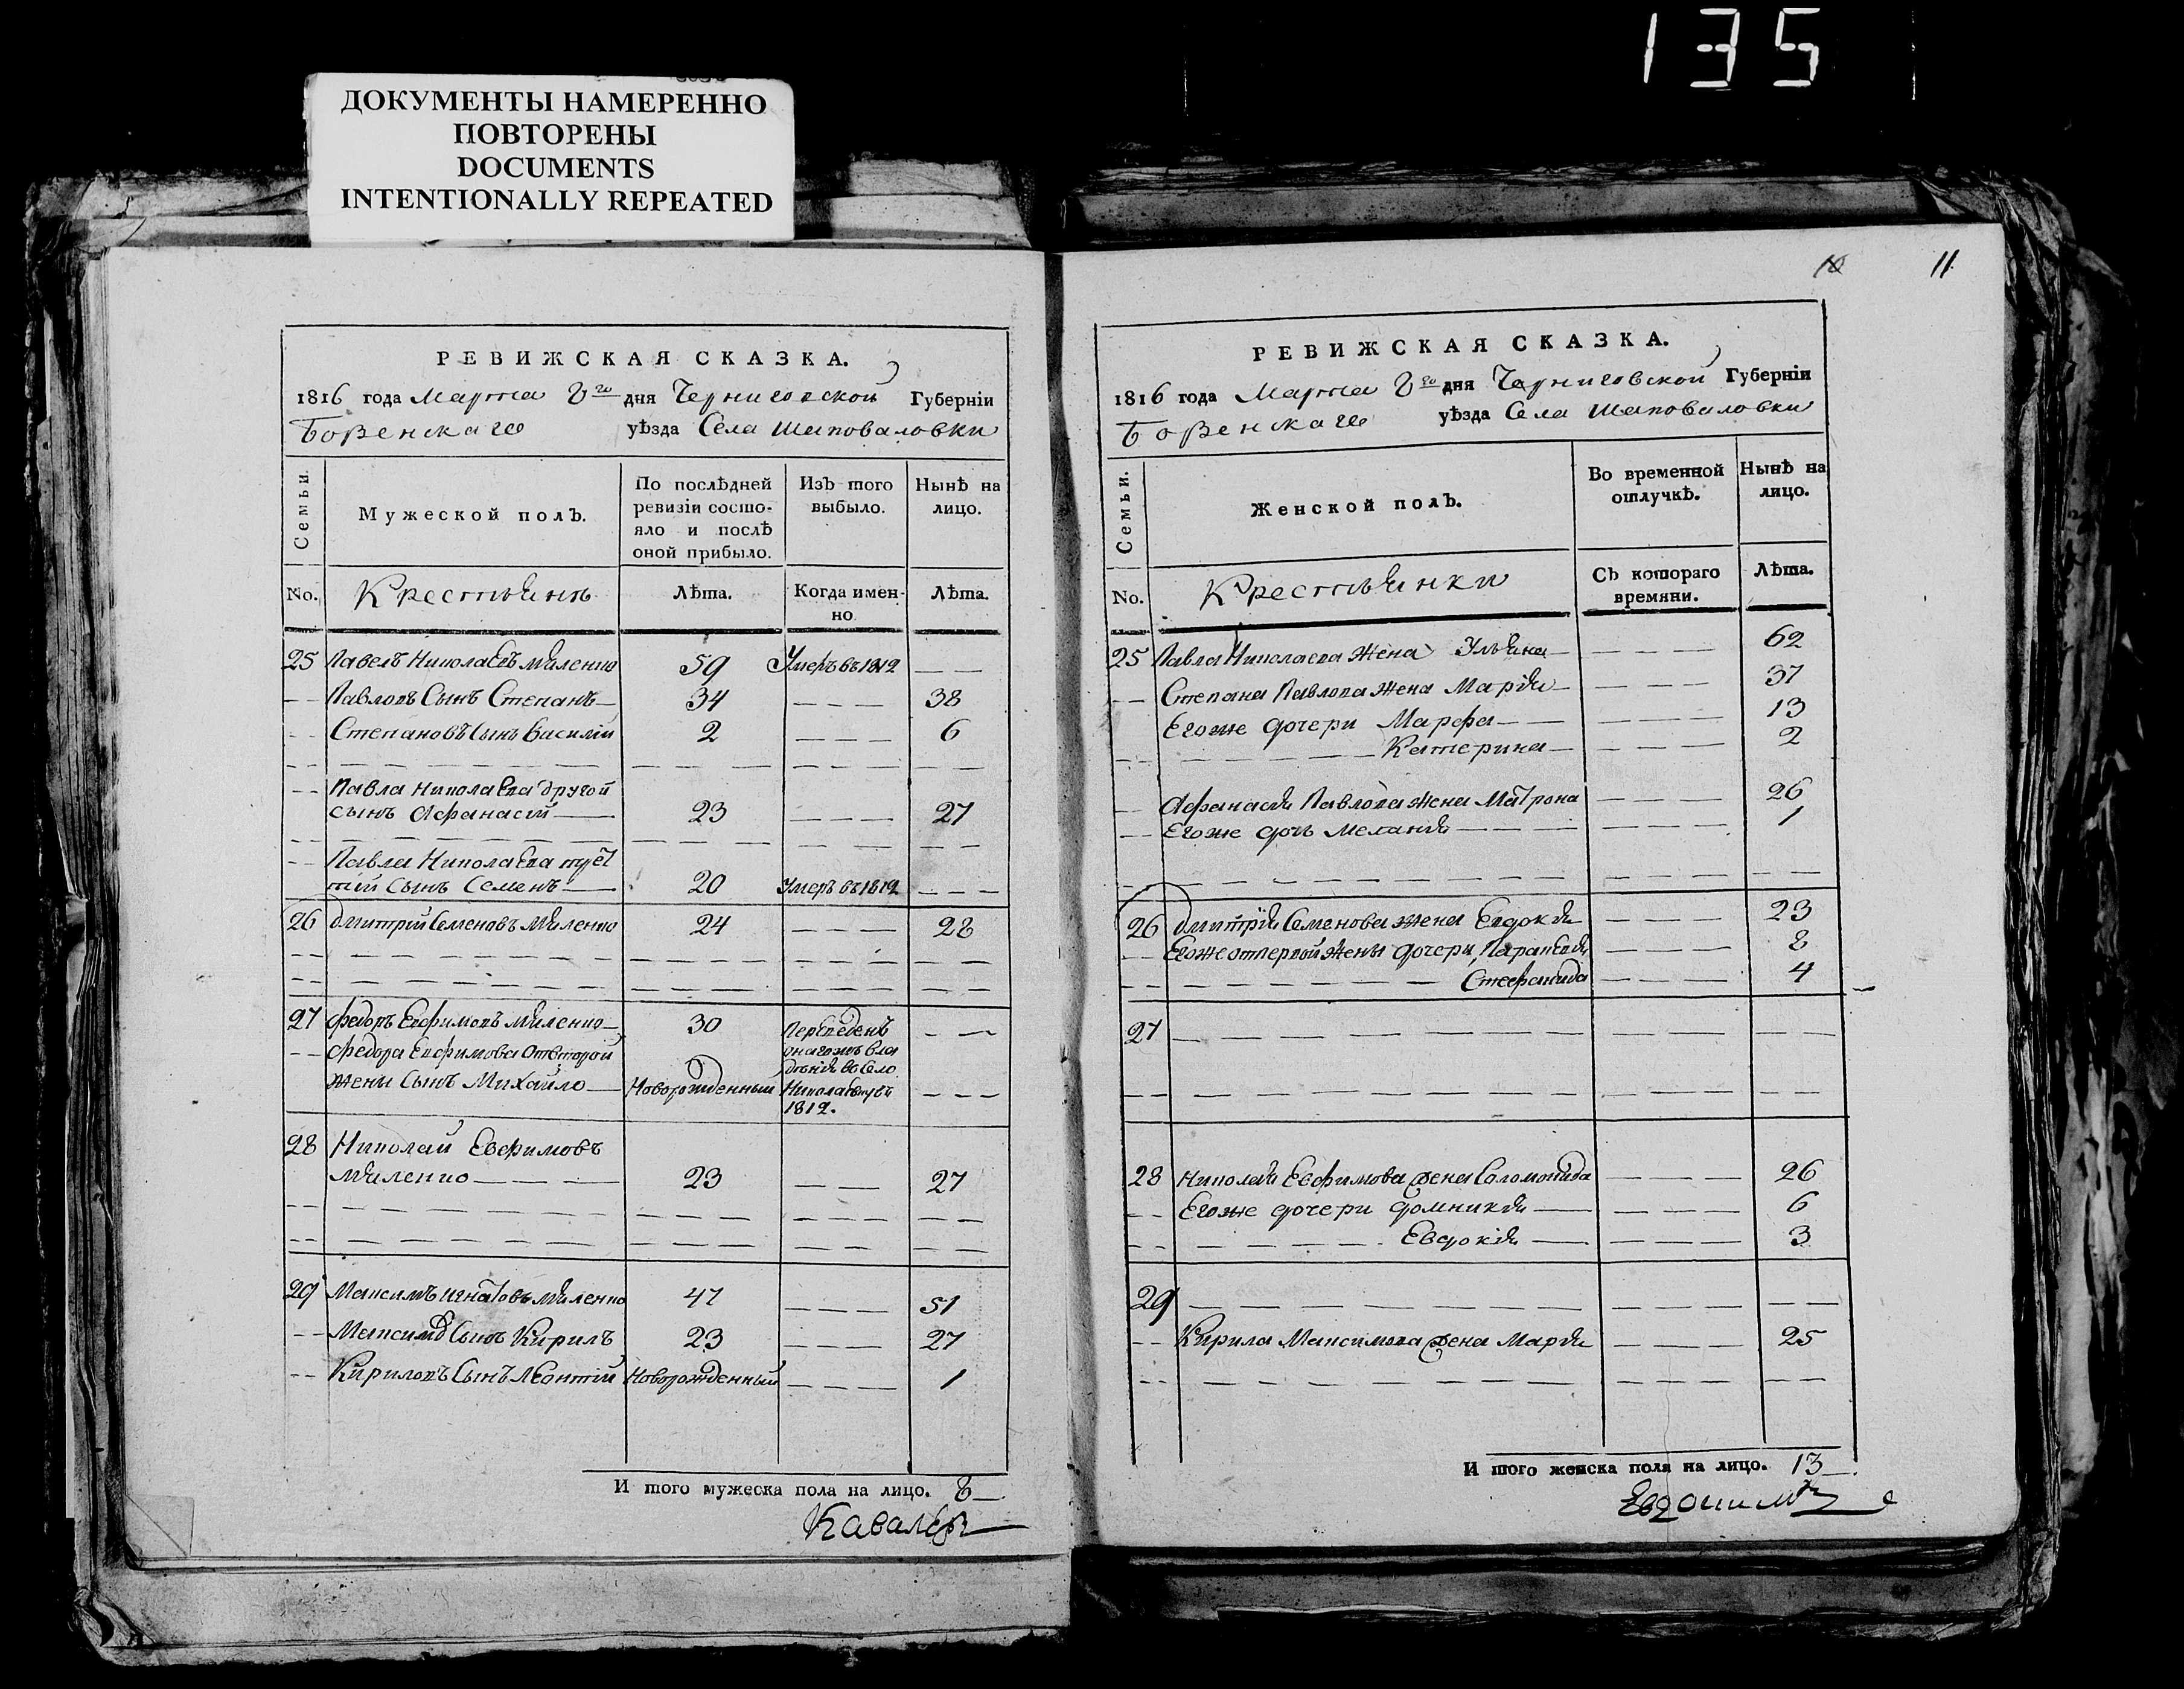 135
ДОКУМЕНТЫ НАМЕРЕННО
ПОВТОРЕНЫ
DOCUMENTS
INTENTIONALLY REPEATED
РЕВИЖСКАЯ СКАЗКА.
1816 года Марта 8го дня Черниговской Губерніи
Борзенскаго уѣзда Села Шаповаловки
Семьи.
Мужеской полъ.
По послѣдней ревизіи состо-
яло и послѣ
оной прибыло.
Изъ того выбыло.
Нынѣ на лицо.
No.
Крестьянъ
Лѣта.
Когда имен-
но.
Лѣта.
25 Павелъ Николаевъ Миленко 59 Умеръ въ 1812
Павловъ Сынъ Степанъ 34 38
Степановъ Сынъ Василій 2 6
Павла Николаева другой
сынъ Афанасій 23 27
Павла Николаева трет
тій Сынъ Семенъ 20 Умеръ въ 1812
26 Дмитрій Семеновъ Миленко 24 28
27 Федоръ Евфимовъ Миленко 30 Переведенъ
Федора Евфимова Отвторой
жени Сынъ Михайло Новорожденный
1812.
28 Николай Евфимовъ
Миленко 23 27
29 Максимъ Игнатовъ Миленко 47 51
Сынъ Кирилъ 23 27
Кириловъ Сынъ Леонтій Новорожденный 1
И того мужеска пола на лицо. 8
Кавалеръ
10 11
РЕВИЖСКАЯ СКАЗКА.
1816 года Марта 8го дня Черниговской Губерніи
Борзенскаго уѣзда Села Шаповаловки
Семьи.
Женской полъ.
Во временной отлучкѣ.
Нынѣ на лицо.
No.
Крестьянки
Съ котораго
времяни.
Лѣта.
25 Павла Николаева Жена Ульяна 62
Степана Павлова жена Марія 37
Егоже дочери Марфа 13
Катерина 2
Афанасія Павлова жена Матрона 26
Егоже дочь Меланія 1
26 Дмитрія Семенова жена Евдокія 23
Егоже отпервой Жены дочери, Параскевія 8
Стефанида 4
27
28 Николая Евфимова жена Соломонида 26
Егоже дочери Домникія 6
Евдокія 3
29
Кирила Максимова жена Марія 25
И того женска пола на лицо. 13